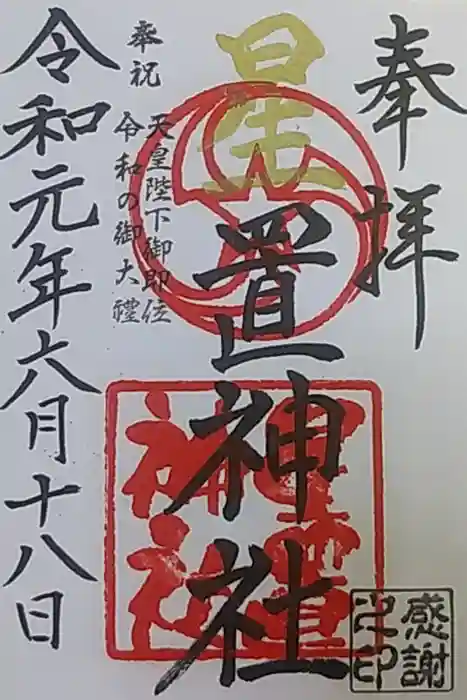 奉拝
星置神社
星置神社
奉祝
天皇陛下御即位
令和の御大禮
令和元年六月十八日
感謝
之印